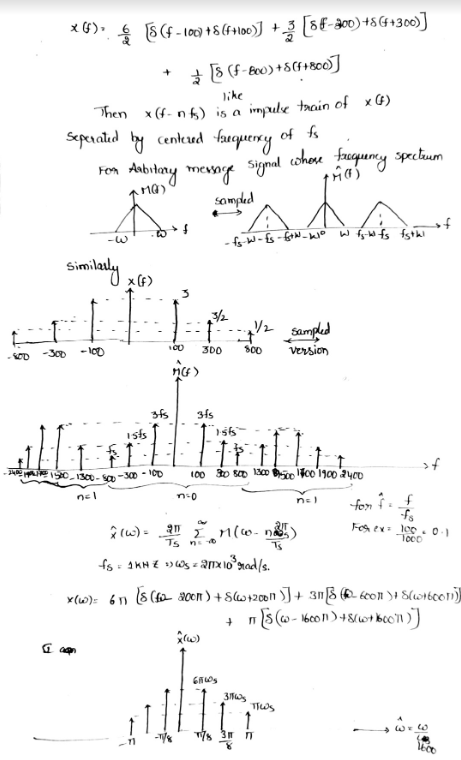 x(f) = 6/2 [δ(f-100)+δ(f+100)] + 3/2 [δ(f-300)+δ(f+300)]
+ 1/2 [δ(f-800)+δ(f+800)]
like
Then x(f-nfs) is a impulse train of x(f)
Seperated by centered frequency of fs
For Arbitary message signal whose frequency spectrum
M(f) sampled M̂(f)
-ω ω f -fs-W -fs -fs+W -W 0 W fs-W fs fs+W f
Similarly
x(f)
3
3/2
1/2 sampled
-800 -300 -100 100 300 800 version
M̂(f)
3fs 3fs
1.5fs 1.5fs
fs
-2400 -1500 -1300 -800 -300 -100 100 300 800 1300 1500 1700 1900 2400 f
n=1 n=0 n=1
for f̂ = f/fs
For ex = 100/1000 = 0.1
x̂(ω) = 2π/Ts ∑ n=-∞ ∞ M(ω - n 2π/Ts)
fs = 1KHZ => ωs = 2π×10³ rad/s.
x(ω) = 6π [δ(ω-200π) + δ(ω+200π)] + 3π[δ(ω-600π)+δ(ω+600π)]
+ π[δ(ω-1600π)+δ(ω+1600π)]
x̂(ω)
6πωs
3πωs
πωs
-π -π/8 π/8 3π/8 π
ω̂ = ω/1600